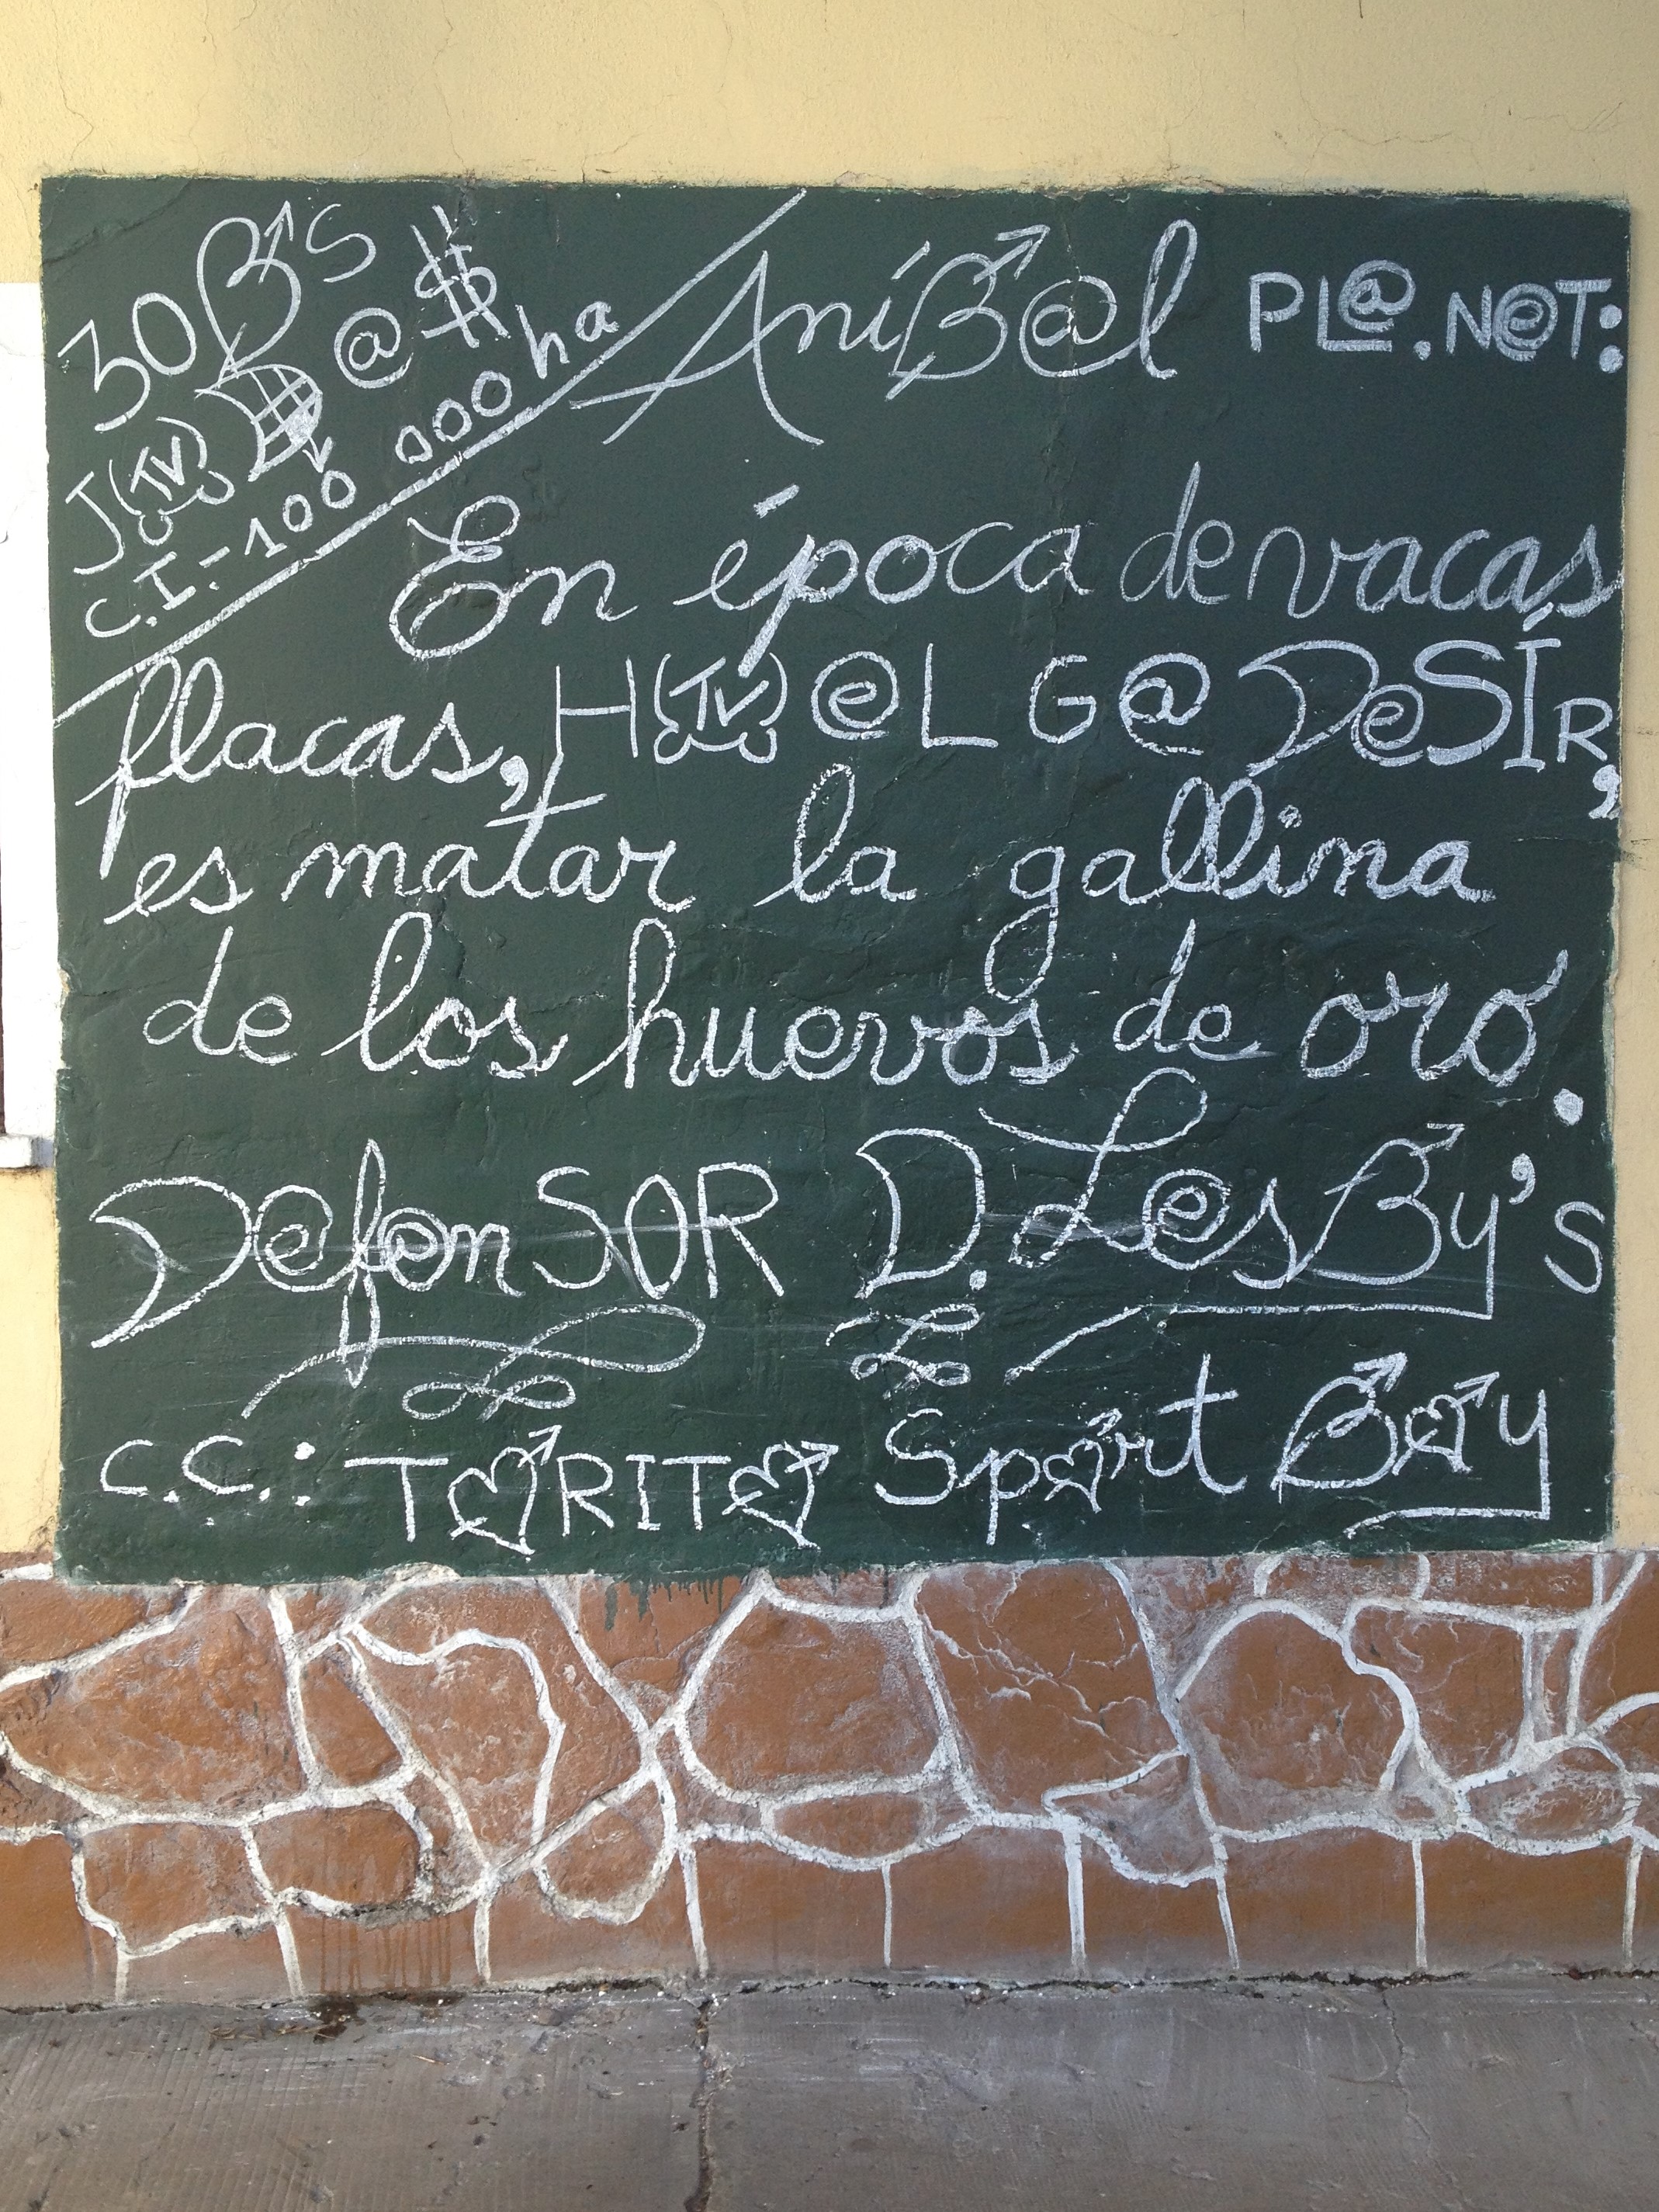 30 B's @ $
C.I.-100 000 ha
AníB@l PL@.N@T:
En época de vacas
flacas, H(TV)@L G@D@SÍR,
es matar la gallina
de los huevos de oro.
D@f@nSOR D. L@sBy's
C.C.: TORITO Sport Boy